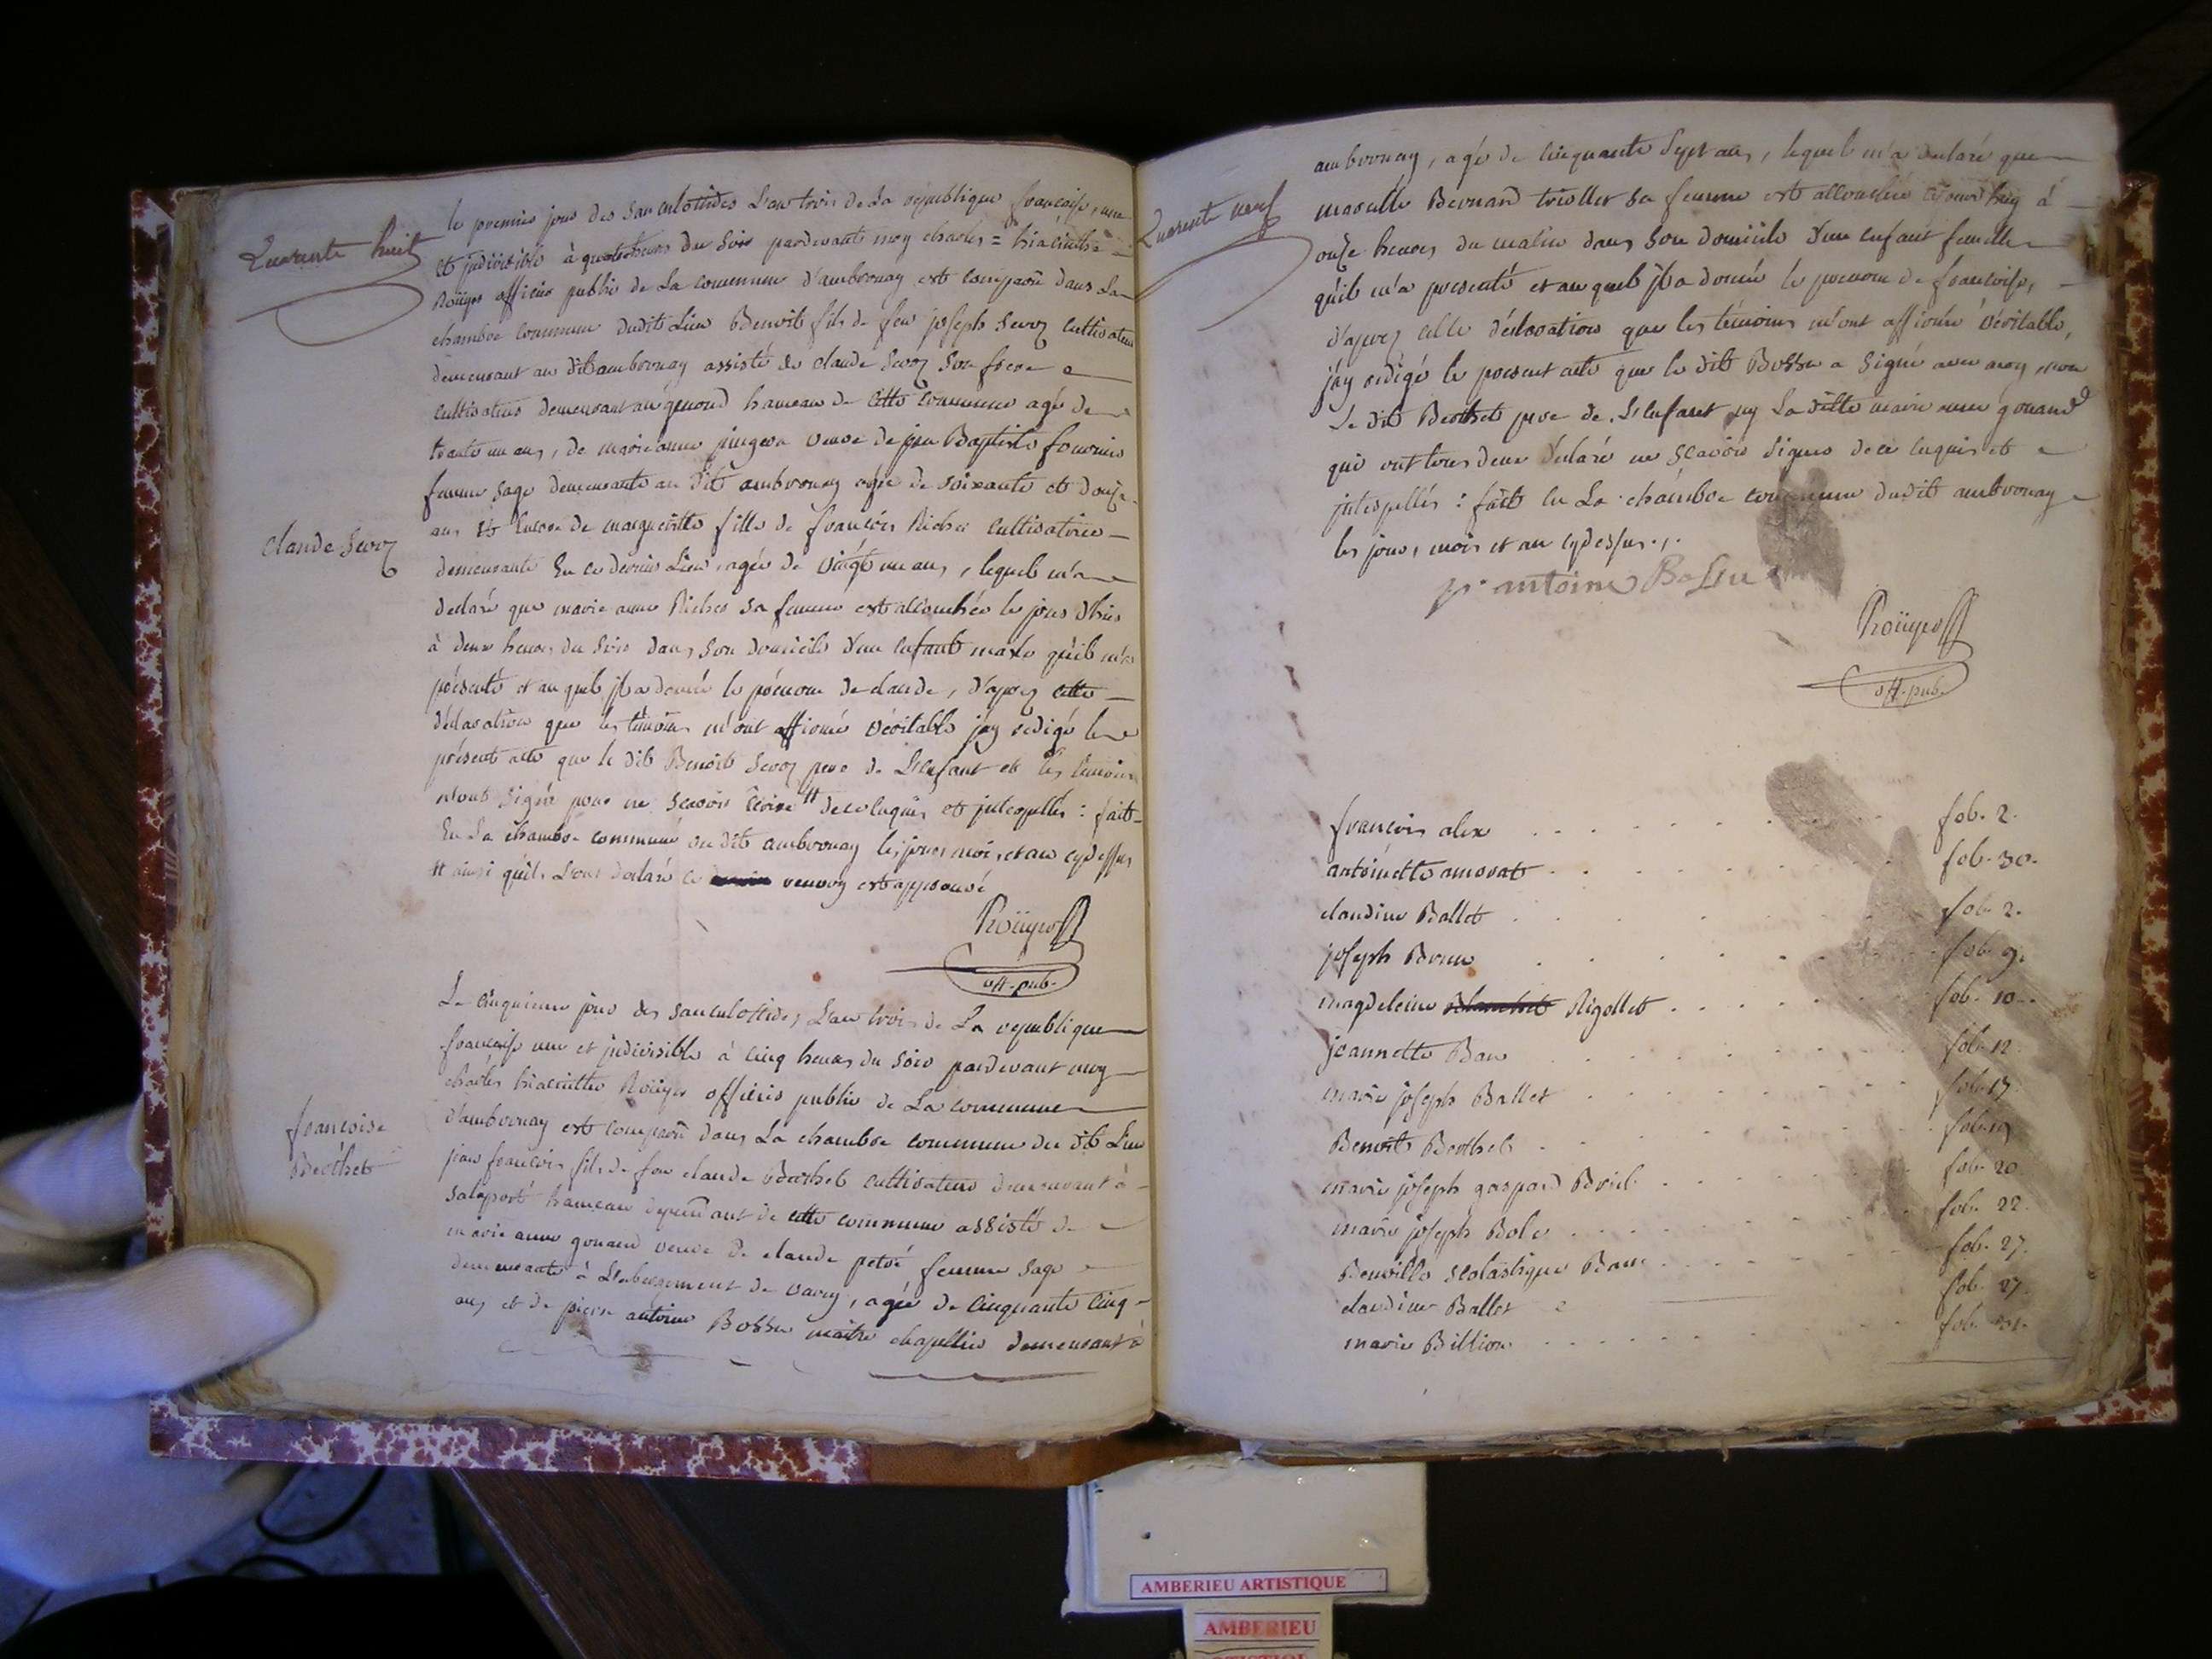 Quarante huit
le premier jour des sanculotides L'an trois de La republique francoise, une
et jndivisible à quatre heures du soir pardevant moy charles = hiacinthe
Roüyer officier public de La commune d'ambronay est comparû dans La
chambre commune dudit Lieu Benoit fils de feu joseph Sevoz cultivateur
demeurant au dit ambronay assisté de claude Sevoz son frere
cultivateur demeurant au genoud hameau de cette commune agé de
trante un ans, de marie anne veuve de jean Baptiste fournier
femme sage demeurante au dit ambronay agée de soixante et douze
ans et encore de margueritte fille de francois Richer cultivatrice
claude Sevoz
demeurante En ce dernier Lieu, agée de vingt un ans, lequel m'a
declaré que marie anne Richer sa femme est accouchée le jour d'hier
à deux heures du soir dans son domicile d'un enfant male qu'il m'a
présenté et au quel jl a donné le prénom de claude, d'aprez cette
déclaration que les témoins m'ont affirmé véritable j'ay redigé le
présent acte que le dit Benoit Sevoz pere de L'enfant et les témoins
n'ont signé pour ne scavoir Ecrire # de ce enquis et jnterpellés : fait
En La chambre commune du dit ambronay les jour, mois, et an cydessus
# ainsi qu'ils L'ont déclaré ce renvoy est approuvé
Roüyer
off. pub.
Le cinquieme jour des sanculottides, L'an trois de La republique
francoise une et jndivisible à cinq heures du soir pardevant moy
charles hiacinthe Roüyer officier public de La commune
d'ambronay est comparû dans La chambre commune du dit Lieu
francoise
Berthet
jean francois fils de feu claude Berthet cultivateur demeurant à
salaport hameau dependant de cette commune assisté de
marie anne gouand veuve de claude petré femme sage
demeurante à L'abergement de varey, agée de cinquante cinq
ans, et de pierre antoine Bossu maître chapellier demeurant à
Quarante neuf
ambronay, agé de cinquante sept ans, lequel m'a declaré que
Bernard triollet sa femme est accouchée ce jourd'huy à
onze heures du matin dans son domicile d'un enfant femelle
qu'il m'a presenté et au quel jl a donné le prenom de francoise,
d'aprez cette déclaration que les témoins m'ont affirmé véritable,
j'ay redigé le present acte que le dit Bossu a signé avec moy, non
Le dit Berthet pere de L'enfant ny La ditte marie anne gouand
qui ont tous deux déclaré ne scavoir signer de ce enquis et
jnterpellés : fait En La chambre commune dudit ambronay
les jour, mois et an cydessus ./.
pr antoine Bossu
Roüyer
off. pub.
francois alex . . . . . fol. 2.
antoinette amorat . . . . . fol. 30.
claudine Ballet . . . . . fol. 2.
joseph Brun . . . . . fol. 9.
magdeleine Rigollet . . . . . fol. 10.
jeannette Bau . . . . . fol. 12.
marie joseph Ballet . . . . . fol. 17.
Benoit Berthet . . . . . fol. 19
marie joseph gaspard . . . . . fol. 20
marie joseph Bole . . . . . fol. 22.
Benoitte scolastique . . . . . fol. 27.
claudine Ballet fol. 27.
marie Billion . . . . . fol. 31.
AMBERIEU ARTISTIQUE
AMBERIEU